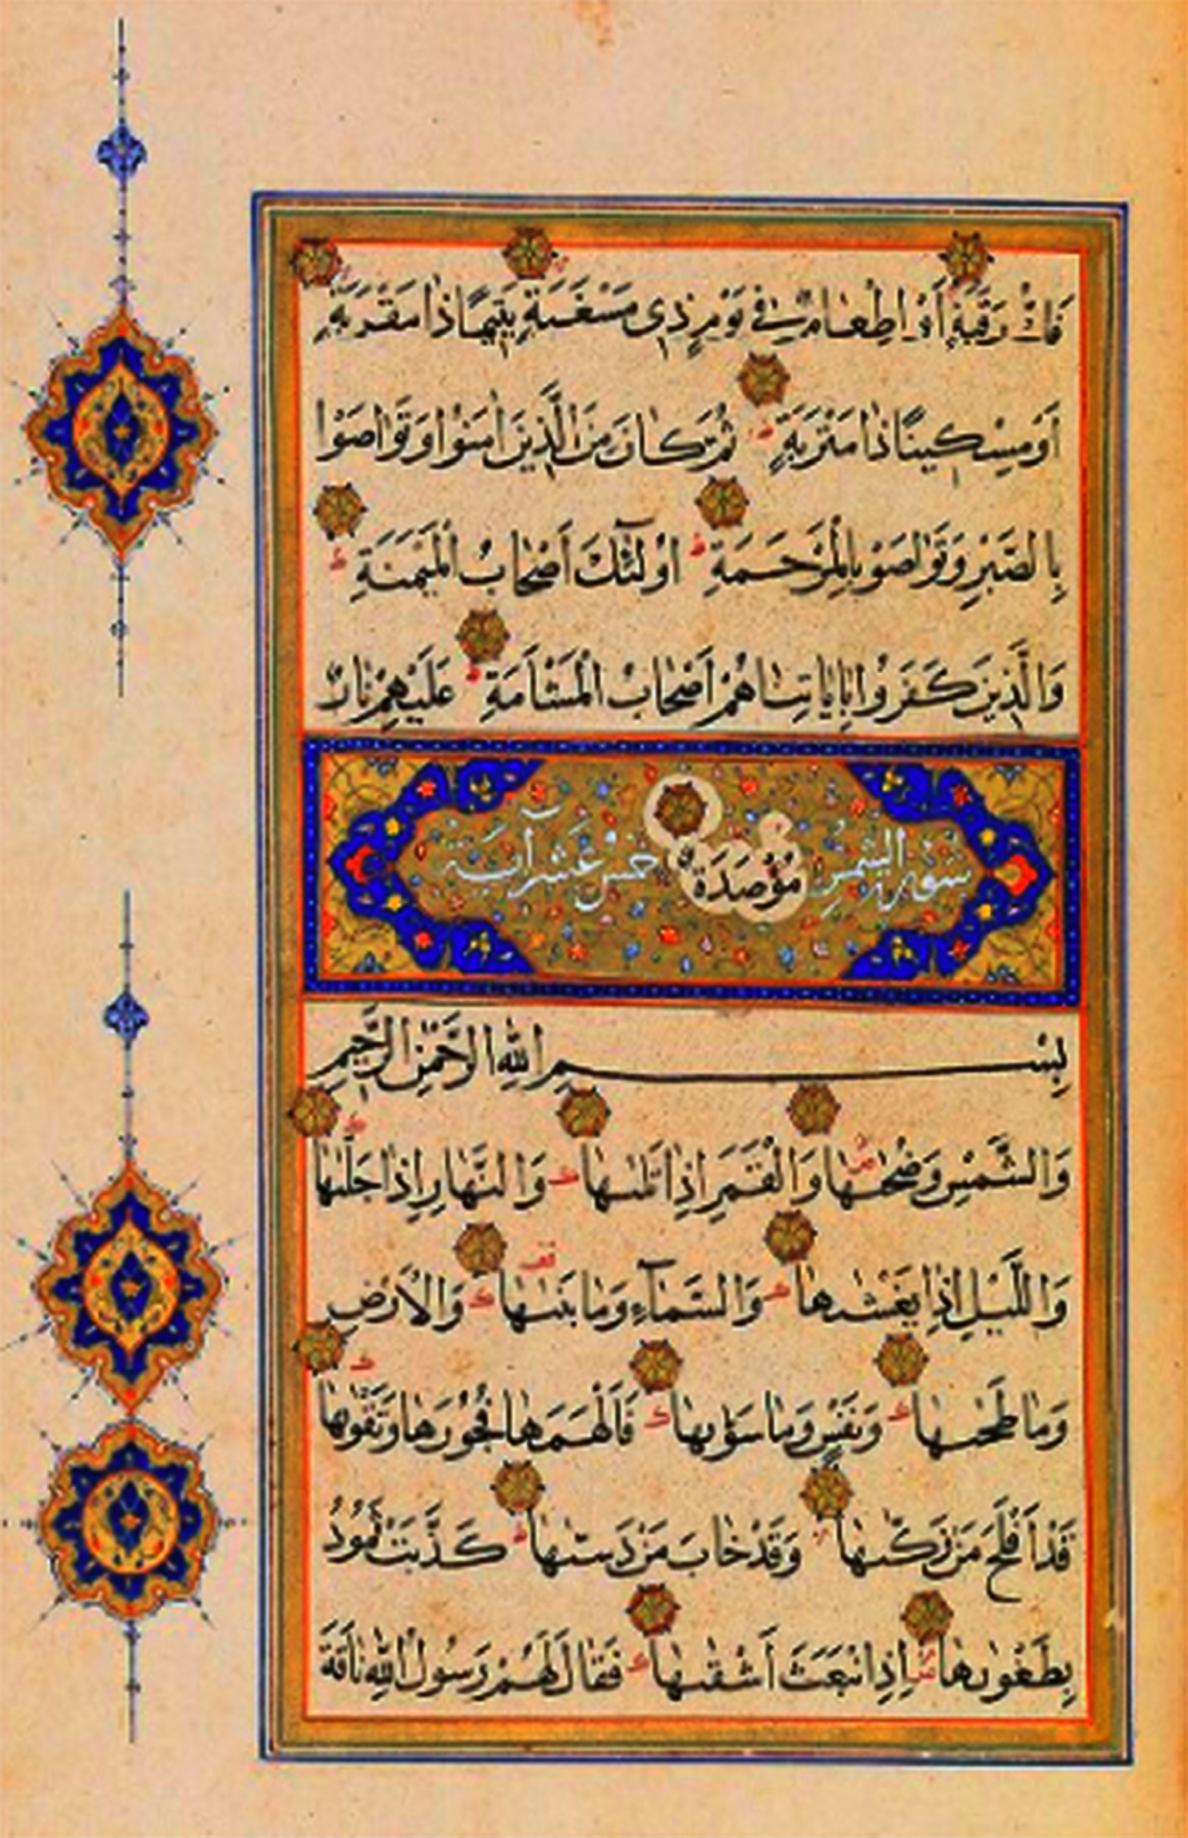 فَكُّ رَقَبَةٍ أَوْ اِطْعَامٌ فِي يَوْمٍ ذِي مَسْغَبَةٍ يَتِيمًا ذَا مَقْرَبَةٍ
أَوْ مِسْكِينًا ذَا مَتْرَبَةٍ ثُمَّ كَانَ مِنَ الَّذِينَ اٰمَنُوا وَتَوَاصَوْا
بِالصَّبْرِ وَتَوَاصَوْا بِالْمَرْحَمَةِ اُولٰئِكَ أَصْحَابُ الْمَيْمَنَةِ
وَالَّذِينَ كَفَرُوا بِاٰيَاتِنَا هُمْ أَصْحَابُ الْمَشْأَمَةِ عَلَيْهِمْ نَارٌ
سورة الشمس مُؤْصَدَةٌ خمس عشر آية
بِسْمِ اللهِ الرَّحْمٰنِ الرَّحِيمِ
وَالشَّمْسِ وَضُحٰيهَا وَالْقَمَرِ اِذَا تَلٰيهَا وَالنَّهَارِ اِذَا جَلّٰيهَا
وَاللَّيْلِ اِذَا يَغْشٰيهَا وَالسَّمَآءِ وَمَا بَنٰيهَا وَالْاَرْضِ
وَمَا طَحٰيهَا وَنَفْسٍ وَمَا سَوّٰيهَا فَاَلْهَمَهَا فُجُورَهَا وَتَقْوٰيهَا
قَدْ أَفْلَحَ مَنْ زَكّٰيهَا وَقَدْ خَابَ مَنْ دَسّٰيهَا كَذَّبَتْ ثَمُودُ
بِطَغْوٰيهَا اِذِ انْبَعَثَ أَشْقٰيهَا فَقَالَ لَهُمْ رَسُولُ اللهِ نَاقَةَ